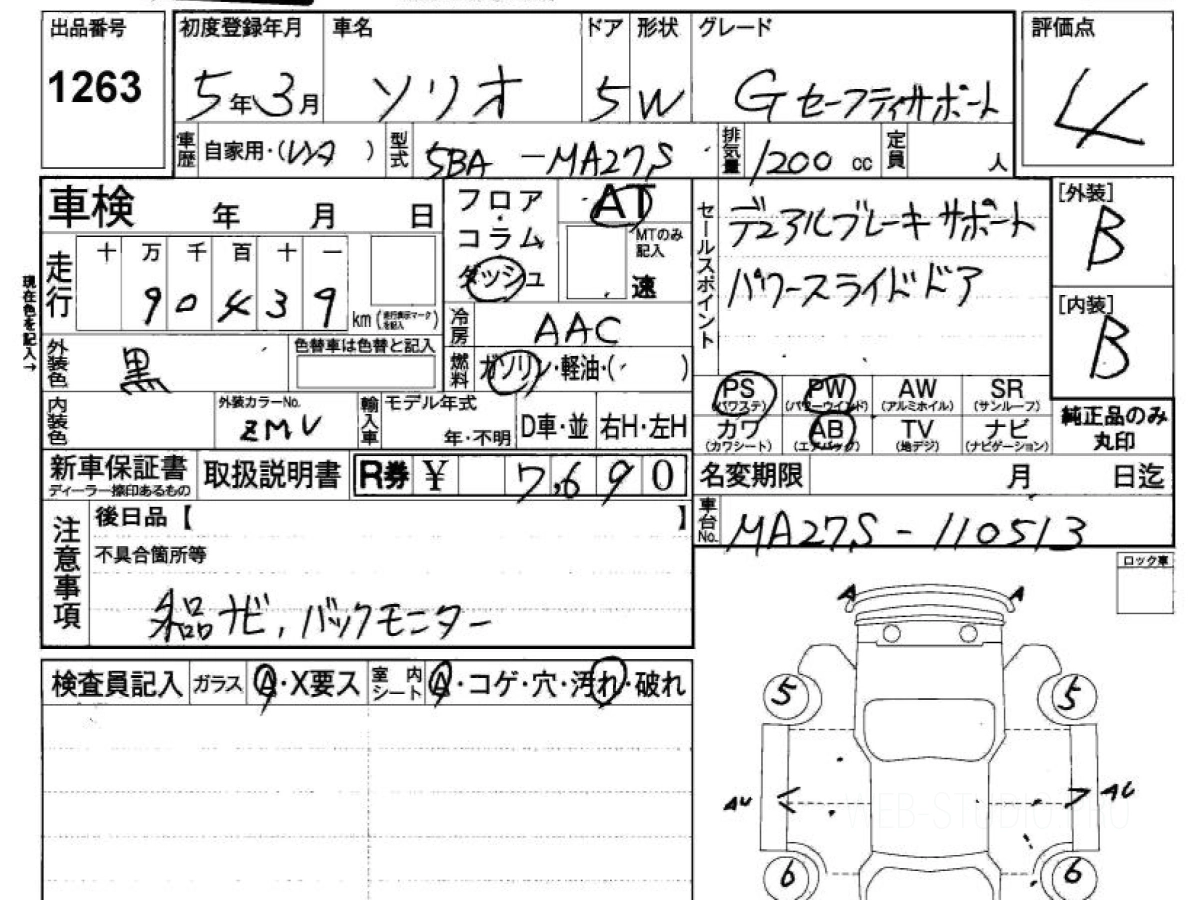 出品番号 初度登録年月 車名 ドア 形状 グレード 評価点
1263 5年3月 ソリオ 5 W Gセーフティサポート 4
車歴 自家用・(レンタ) 型式 5BA-MA27S 排気量 1200cc 定員 人
車検 年 月 日 フロア・コラム ダッシュ AT MTのみ記入 速
セールスポイント デュアルブレーキサポート
パワースライドドア
[外装] B
[内装] B
現在色を記入→
走行 十 万 千 百 十 一
9 0 4 3 9 km(走行表示マークを記入)
冷房 AAC
外装色 黒 色替車は色替と記入 燃料 ガソリン・軽油・( )
PS (パワステ) PW (パワーウインド) AW (アルミホイル) SR (サンルーフ)
カワ (カワシート) AB (エアバッグ) TV (地デジ) ナビ (ナビゲーション)
純正品のみ丸印
内装色 外装カラーNo. ZMV 輸入車 モデル年式 年・不明 D車・並 右H・左H
新車保証書 ディーラー捺印あるもの 取扱説明書 R券 ¥ 7,690 名変期限 月 日迄
車台No. MA27S-110513
注意事項 後日品【 】
不具合箇所等
社品ナビ,バックモニター
ロック車
検査員記入 ガラス A・X要ス 室内シート A・コゲ・穴・汚れ・破れ
A A
5 5
AU AU
6 6
WEB-STUDIO.PRO